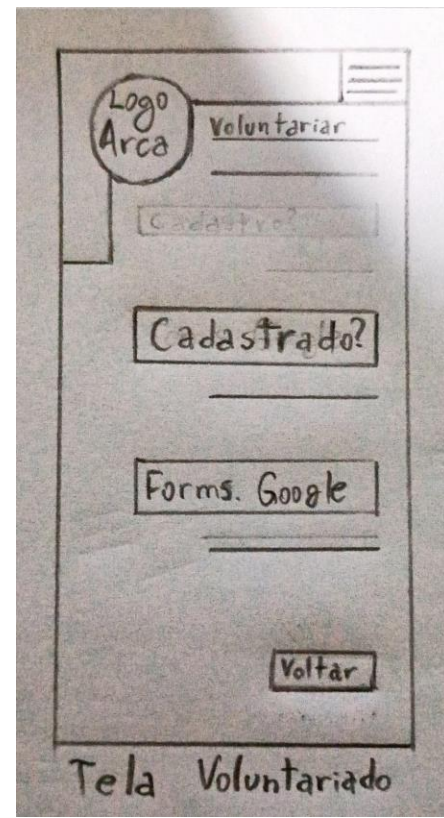 Logo
Arca
Voluntariar
Cadastro?
Cadastrado?
Forms. Google
Voltar
Tela Voluntariado